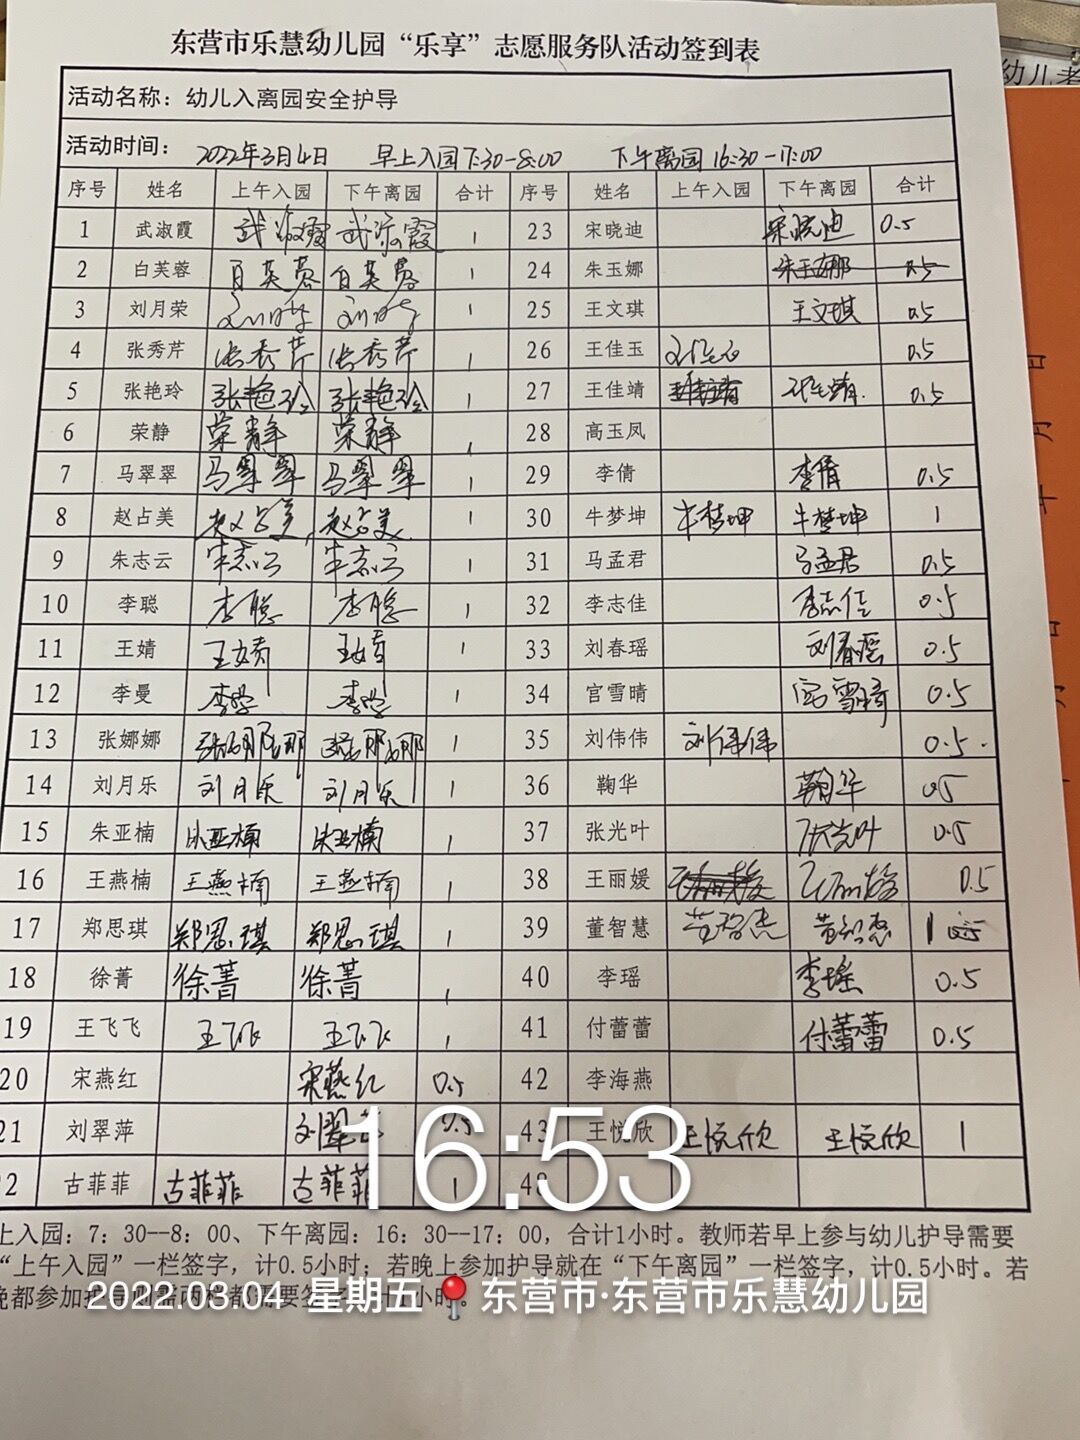 东营市乐慧幼儿园“乐享”志愿服务队活动签到表
幼儿老
活动名称：幼儿入离园安全护导
活动时间： 2022年3月4日 早上入园7:30-8:00 下午离园16:30-17:00
序号 姓名 上午入园 下午离园 合计 序号 姓名 上午入园 下午离园 合计
1 武淑霞 武淑霞 武淑霞 1 23 宋晓迪 宋晓迪 0.5
2 白芙蓉 白芙蓉 白芙蓉 1 24 朱玉娜 朱玉娜 0.5
3 刘月荣 1 25 王文琪 王文琪 0.5
4 张秀芹 张秀芹 张秀芹 1 26 王佳玉 0.5
5 张艳玲 张艳玲 张艳玲 1 27 王佳靖 王佳靖 0.5
6 荣静 荣静 荣静 1 28 高玉凤
7 马翠翠 马翠翠 马翠翠 1 29 李倩 李倩 0.5
8 赵占美 赵占美 赵占美 1 30 牛梦坤 牛梦坤 牛梦坤 1
9 朱志云 朱志云 朱志云 1 31 马孟君 马孟君 0.5
10 李聪 李聪 李聪 1 32 李志佳 李志佳 0.5
11 王婧 王婧 王婧 1 33 刘春瑶 刘春瑶 0.5
12 李曼 李曼 李曼 1 34 官雪晴 官雪晴 0.5
13 张娜娜 张娜娜 张娜娜 1 35 刘伟伟 刘伟伟 0.5
14 刘月乐 刘月乐 刘月乐 1 36 鞠华 鞠华 0.5
15 朱亚楠 朱亚楠 朱亚楠 1 37 张光叶 张光叶 0.5
16 王燕楠 王燕楠 王燕楠 1 38 王丽媛 0.5
17 郑思琪 郑思琪 郑思琪 1 39 董智慧 董智慧 董智慧 1
18 徐菁 徐菁 徐菁 1 40 李瑶 李瑶 0.5
19 王飞飞 王飞飞 王飞飞 1 41 付蕾蕾 付蕾蕾 0.5
20 宋燕红 宋燕红 0.5 42 李海燕
21 刘翠萍 刘翠萍 0.5 43 王悦欣 王悦欣 王悦欣 1
22 古菲菲 古菲菲 古菲菲 1
16:53
上入园：7：30--8：00、下午离园：16：30--17：00，合计1小时。教师若早上参与幼儿护导需要
“上午入园”一栏签字，计0.5小时；若晚上参加护导就在“下午离园”一栏签字，计0.5小时。若
晚都参加
2022.03.04 星期五 东营市·东营市乐慧幼儿园